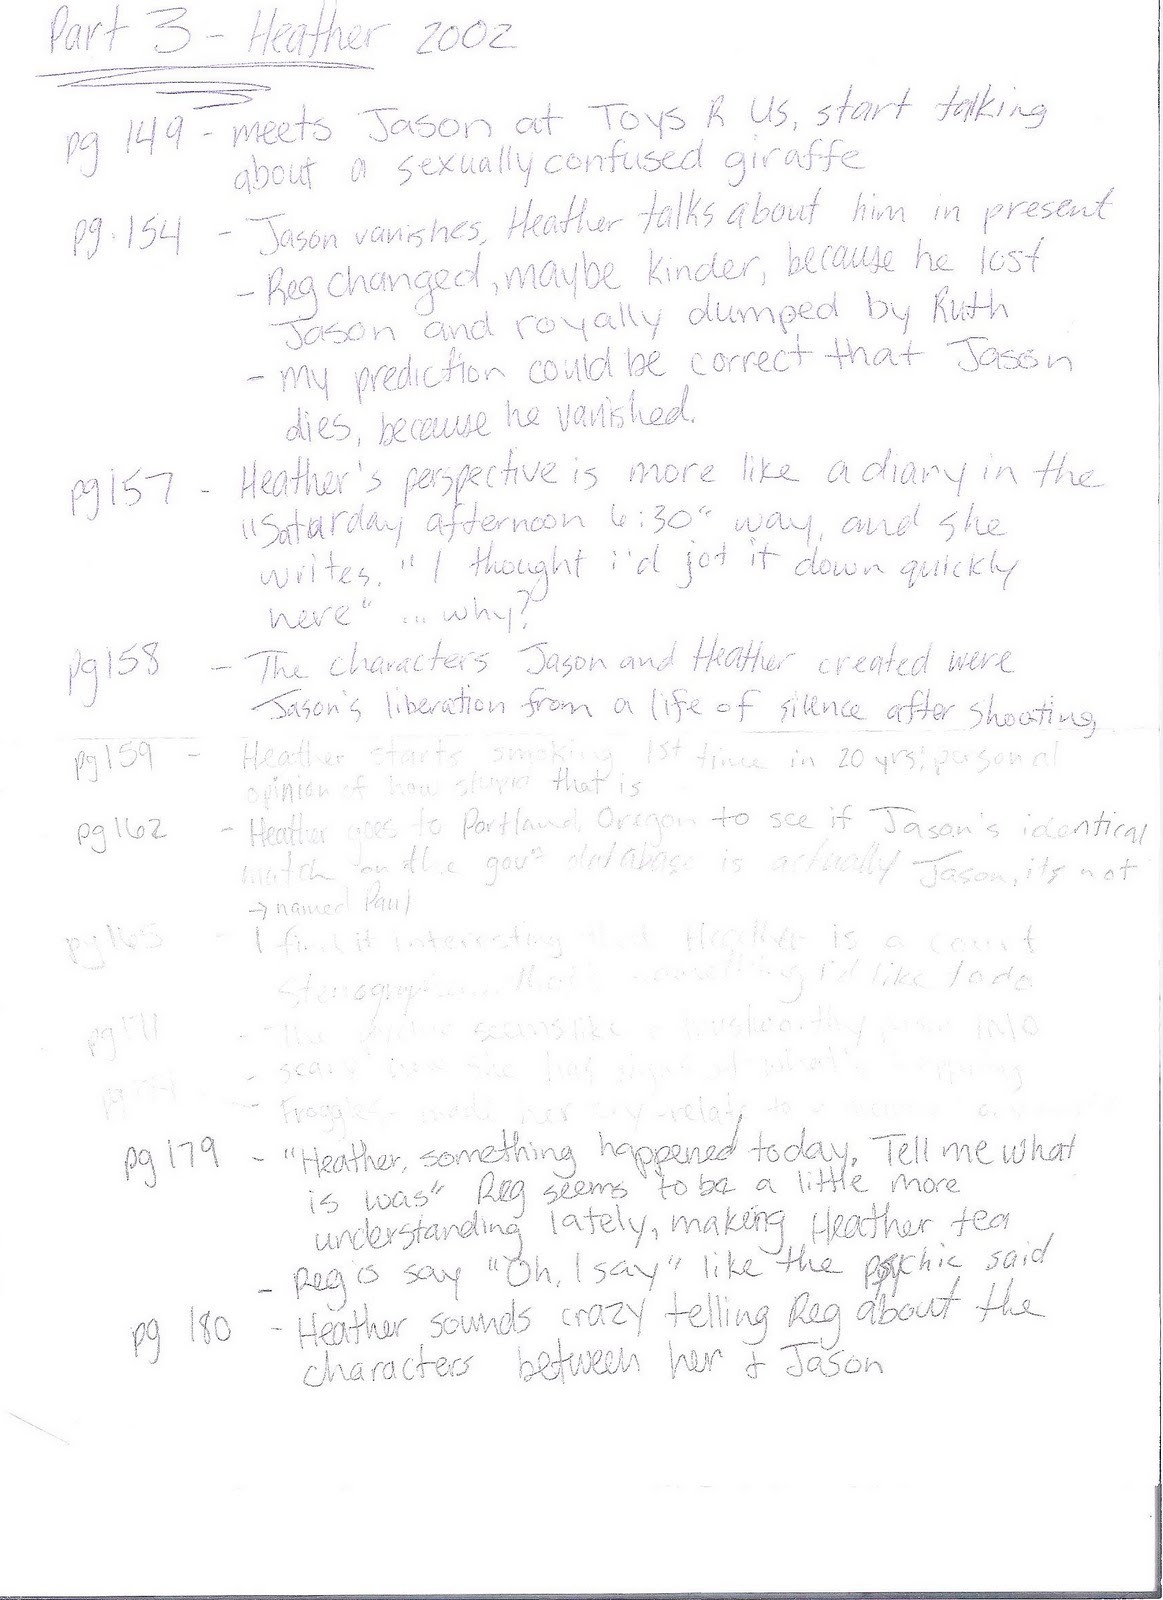 Part 3 - Heather 2002
pg 149 - meets Jason at Toys R Us, start talking
about a sexually confused giraffe
pg. 154 - Jason vanishes, Heather talks about him in present
- Reg changed, maybe kinder, because he lost
Jason and royally dumped by Ruth
- my prediction could be correct that Jason
dies, because he vanished.
pg 157 - Heather's perspective is more like a diary in the
"Saturday afternoon 6:30" way, and she
writes, "I thought i'd jot it down quickly
here" ... why?
pg 158 - The characters Jason and Heather created were
Jason's liberation from a life of silence after shooting,
pg 159 - Heather starts smoking 1st time in 20 yrs; personal
opinion of how stupid that is
pg 162 - Heather goes to Portland, Oregon to see if Jason's identical
match on the gov't database is actually Jason, its not
→ named Paul
pg 165 - I find it interesting that Heather is a court
stenographer... that's something I'd like to do
pg 171 - The psychic seems like a trustworthy
scary she has what's happening
- Froggles - made her cry - relate to a
pg 179 - "Heather, something happened today. Tell me what
is was" Reg seems to be a little more
understanding lately, making Heather tea
- Reg is say "Oh, I say" like the psychic said
pg 180 - Heather sounds crazy telling Reg about the
characters between her & Jason